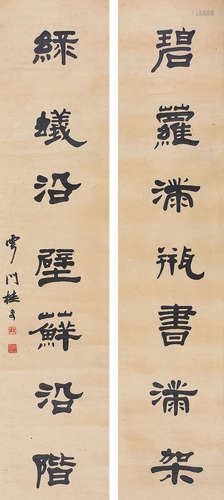 碧蘿滿瓶書滿架
綠蟻沿壁蘚沿階
雩門桂